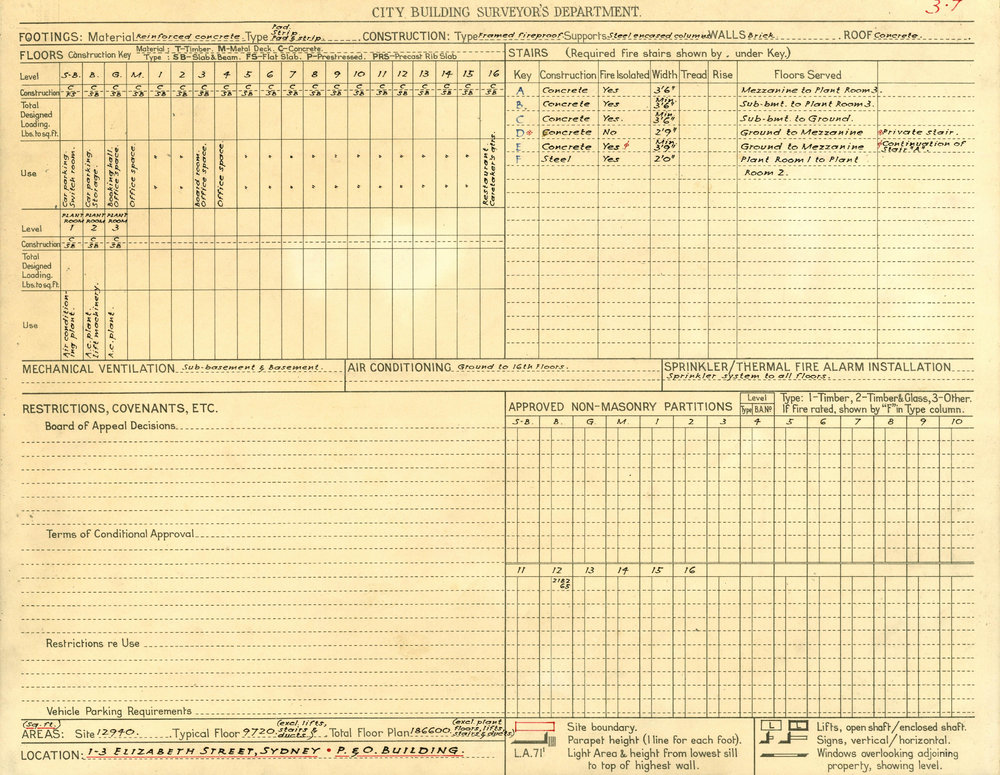 3.7
CITY BUILDING SURVEYOR'S DEPARTMENT.
FOOTINGS: Material Reinforced concrete. Type Pad. Strip Pad & strip. CONSTRUCTION: Type Framed fireproof Supports Steel encased columns WALLS Brick. ROOF Concrete.
FLOORS Construction Key Material; T-Timber. M-Metal Deck. C-Concrete.
Type : SB-Slab & Beam. FS-Flat Slab. P-Prestressed. PRS-Precast Rib Slab
Level S-B. B. G. M. 1 2 3 4 5 6 7 8 9 10 11 12 13 14 15 16
Construction C FS C SB C SB C SB C SB C SB C SB C SB C SB C SB C SB C SB C SB C SB C SB C SB C SB C SB C SB C SB
Total
Designed
Loading.
Lbs.to sq.ft.
Use
Car parking. Switch room.
Car parking. Storage.
Booking hall. Office space.
Office space.
" " " "
Board room. Office space.
Office space.
" " " " " " " " " " " " " " " " " " " " " "
Restaurant Caretaker's qtrs.
Level PLANT ROOM 1 PLANT ROOM 2 PLANT ROOM 3
Construction C SB C SB C SB
Total
Designed
Loading.
Lbs.to sq.ft.
Use
Air condition-ing plant.
A.c. plant. Lift machinery.
A.c. plant.
STAIRS (Required fire stairs shown by . under Key.)
Key Construction Fire Isolated Width Tread Rise Floors Served
A Concrete Yes 3'6" Mezzanine to Plant Room 3.
B. Concrete Yes Min. 3'6" Sub-bmt. to Plant Room 3.
C Concrete Yes. Min. 3'6" Sub-bmt. to Ground.
D* Concrete No 2'9" Ground to Mezzanine *Private stair.
E Concrete Yes ɸ Min 3'9" Ground to Mezzanine ɸ Continuation of Stair "A".
F Steel Yes 2'0" Plant Room 1 to Plant
Room 2.
MECHANICAL VENTILATION Sub-basement & Basement.
AIR CONDITIONING Ground to 16th Floors.
SPRINKLER/THERMAL FIRE ALARM INSTALLATION
Sprinkler system to all floors.
RESTRICTIONS, COVENANTS, ETC.
Board of Appeal Decisions.
Terms of Conditional Approval
Restrictions re Use
Vehicle Parking Requirements
APPROVED NON-MASONRY PARTITIONS Level Type B.A.Nº Type: 1-Timber, 2-Timber & Glass, 3-Other.
If Fire rated, shown by "F" in Type column.
S-B. B. G. M. 1 2 3 4 5 6 7 8 9 10
11 12 13 14 15 16
2182
65
(Sq. ft.)
AREAS: Site 12940. Typical Floor 9720. (excl. lifts, stairs & ducts) Total Floor Plan 186600. (excl. plant floors, lifts, stairs & ducts)
LOCATION: 1-3 ELIZABETH STREET, SYDNEY • P. & O. BUILDING.
Site boundary.
Parapet height (1 line for each foot).
L.A.71' Light Area & height from lowest sill
to top of highest wall.
L L Lifts, open shaft/enclosed shaft.
Signs, vertical/horizontal.
Windows overlooking adjoining
property, showing level.